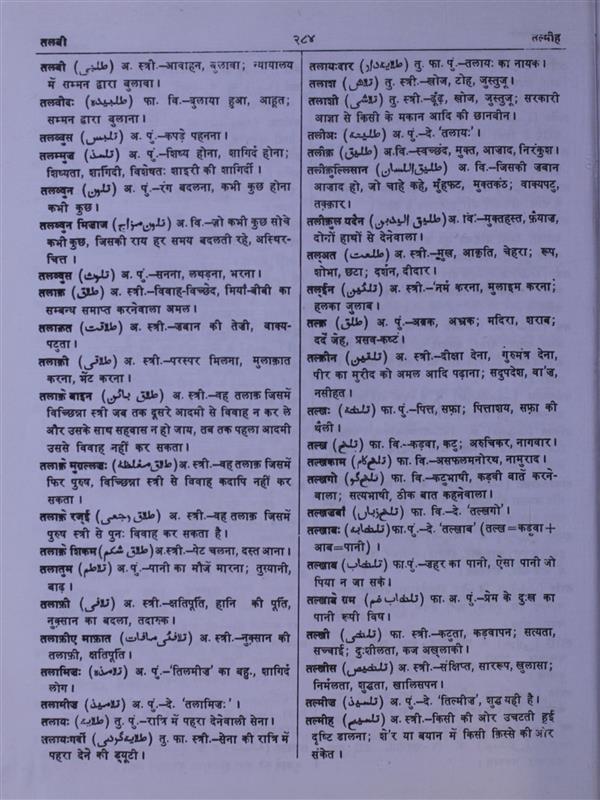 तलबी
२८४
तल्मीह
तलबी (طلبی) अ. स्त्री.–आवाहन, बुलावा; न्यायालय
में सम्मन द्वारा बुलावा।
तलबीदः (طلبیدہ) फा. वि.–बुलाया हुआ, आहूत;
सम्मन द्वारा बुलाना।
तलब्बुस (تلبس) अ. पुं.–कपड़े पहनना।
तलम्मुज़ (تلمذ) अ. पुं.–शिष्य होना, शागिर्द होना;
शिष्यता, शागिर्दी, विशेषतः शाइरी की शागिर्दी।
तलव्वुन (تلون) अ. पुं.–रंग बदलना, कभी कुछ होना
कभी कुछ।
तलव्वुन मिज़ाज (تلون مزاج) अ. वि.–जो कभी कुछ सोचे
कभी कुछ, जिसकी राय हर समय बदलती रहे, अस्थिर-
चित्त।
तलव्वुस (تلوث) अ. पुं.–सनना, लथड़ना, भरना।
तलाक़ (طلاق) अ. स्त्री.–विवाह-विच्छेद, मियाँ-बीबी का
सम्बन्ध समाप्त करनेवाला अमल।
तलाक़त (طلاقت) अ. स्त्री.–ज़बान की तेज़ी, वाक्य-
पटुता।
तलाक़ी (تلاقی) अ. स्त्री.–परस्पर मिलना, मुलाक़ात
करना, भेंट करना।
तलाक़े बाइन (طلاق بائن) अ. स्त्री.–वह तलाक़ जिसमें
विच्छिन्ना स्त्री जब तक दूसरे आदमी से विवाह न कर ले
और उसके साथ सहवास न हो जाय, तब तक पहला आदमी
उससे विवाह नहीं कर सकता।
तलाक़े मुग़ल्लज़ः (طلاق مغلظہ) अ. स्त्री.–वह तलाक़ जिसमें
फिर पुरुष, विच्छिन्ना स्त्री से विवाह कदापि नहीं कर
सकता।
तलाक़े रजई (طلاق رجعی) अ. स्त्री.–वह तलाक़ जिसमें
पुरुष स्त्री से पुनः विवाह कर सकता है।
तलाक़े शिकम (طلاق شکم) अ.स्त्री.–पेट चलना, दस्त आना।
तलातुम (تلاطم) अ. पुं.–पानी का मौजें मारना; तुग़यानी,
बाढ़।
तलाफ़ी (تلافی) अ. स्त्री.–क्षतिपूर्ति, हानि की पूर्ति,
नुक़्सान का बदला, तदारुक।
तलाफ़ीए माफ़ात (تلافئی مافات) अ. स्त्री.–नुक़्सान की
तलाफ़ी, क्षतिपूर्ति।
तलामिज़ः (تلامذہ) अ. पुं.–'तिलमीज़' का बहु., शागिर्द
लोग।
तलामीज़ (تلامیذ) अ. पुं.–दे. 'तलामिज़ः'।
तलायः (طلایہ) तु. पुं.–रात्रि में पहरा देनेवाली सेना।
तलायःगर्दी (طلایہ گردی) तु. फा. स्त्री.–सेना की रात्रि में
पहरा देने की ड्यूटी।
तलायःदार (طلایہ دار) तु. फा. पुं.–तलायः का नायक।
तलाश (تلاش) तु. स्त्री.–खोज, टोह, जुस्तुजू।
तलाशी (تلاشی) तु. स्त्री.–ढूँढ़, खोज, जुस्तुजू; सरकारी
आज्ञा से किसी के मकान आदि की छानबीन।
तलीअः (طلیعہ) अ. पुं.–दे. 'तलायः'।
तलीक़ (طلیق) अ.वि.–स्वच्छंद, मुक्त, आज़ाद, निरंकुश।
तलीक़ुल्लिसान (طلیق اللسان) अ. वि.–जिसकी ज़बान
आज़ाद हो, जो चाहे कहे, मुंहफट, मुक्तकंठ; वाक्यपटु,
तक़्क़ार।
तलीक़ुल यदैन (طلیق الیدین) अ. वि.–मुक्तहस्त, फ़ैयाज़,
दोनों हाथों से देनेवाला।
तल्अत (طلعت) अ. स्त्री.–मुख, आकृति, चेहरा; रूप,
शोभा, छटा; दर्शन, दीदार।
तल्ईन (تلئین) अ. स्त्री.–नर्म करना, मुलाइम करना;
हलका जुलाब।
तल्क़ (طلق) अ. पुं.–अब्रक, अभ्रक; मदिरा, शराब;
दर्दे ज़ेह, प्रसव-कष्ट।
तल्क़ीन (تلقین) अ. स्त्री.–दीक्षा देना, गुरुमंत्र देना,
पीर का मुरीद को अमल आदि पढ़ाना; सदुपदेश, वा'ज़,
नसीहत।
तल्ख़ः (تلخہ) फा. पुं.–पित्त, सफ़्रा; पित्ताशय, सफ़्रा की
थैली।
तल्ख़ (تلخ) फा. वि.–कड़वा, कटु; अरुचिकर, नागवार।
तल्ख़काम (تلخ کام) फा. वि.–असफलमनोरथ, नामुराद।
तल्ख़गो (تلخ گو) फा. वि.–कटुभाषी, कड़वी बातें करने-
वाला; सत्यभाषी, ठीक बात कहनेवाला।
तल्ख़ज़बाँ (تلخ زباں) फा. वि.–दे. 'तल्ख़गो'।
तल्ख़ाबः (تلخابہ) फा.पुं.–दे. 'तल्ख़ाब' (तल्ख़=कड़वा+
आब=पानी)।
तल्ख़ाब (تلخاب) फा. पुं.–ज़हर का पानी, ऐसा पानी जो
पिया न जा सके।
तल्ख़ाबे ग़म (تلخاب غم) फा. अ. पुं.–प्रेम के दुःख का
पानी रूपी विष।
तल्ख़ी (تلخی) फा. स्त्री.–कटुता, कड़वापन; सत्यता,
सच्चाई; दुःशीलता, कज अख़्लाक़ी।
तल्ख़ीस (تلخیص) अ. स्त्री.–संक्षिप्त, साररूप, ख़ुलासा;
निर्मलता, शुद्धता, ख़ालिसपन।
तल्मीज़ (تلمیذ) अ. पुं.–दे. 'तिल्मीज़', शुद्ध यही है।
तल्मीह (تلمیح) अ. स्त्री.–किसी की ओर उचटती हुई
दृष्टि डालना; शे'र या बयान में किसी क़िस्से की ओर
संकेत।